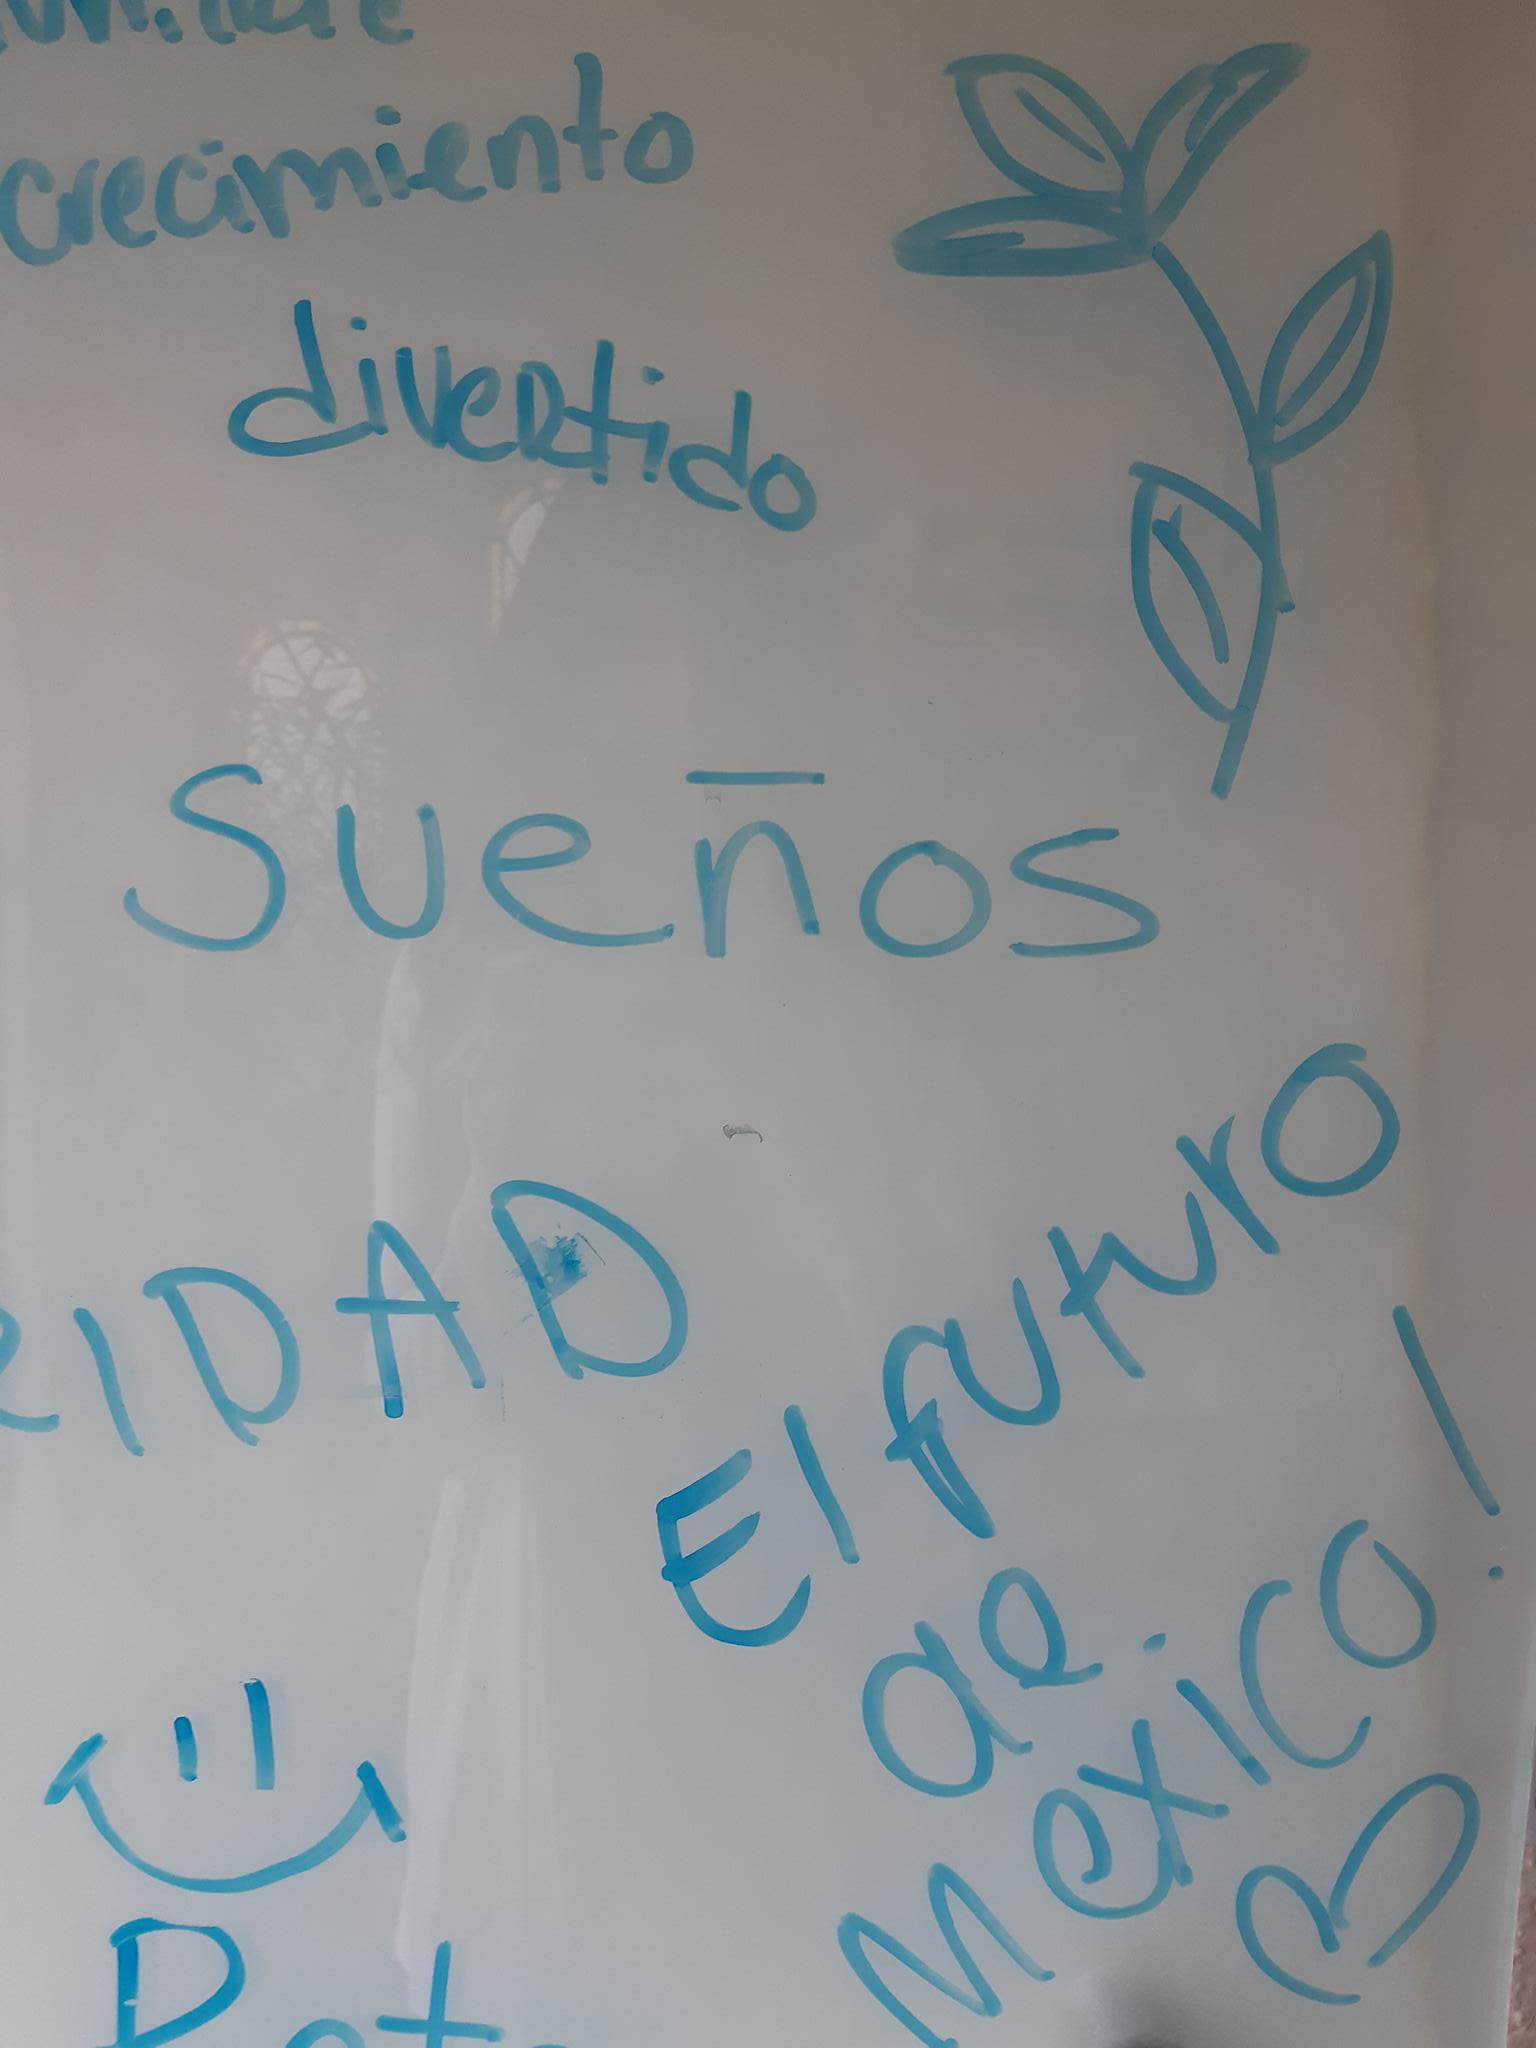 crecimiento
divertido
Sueños
RIDAD
El futuro
de
Mexico!